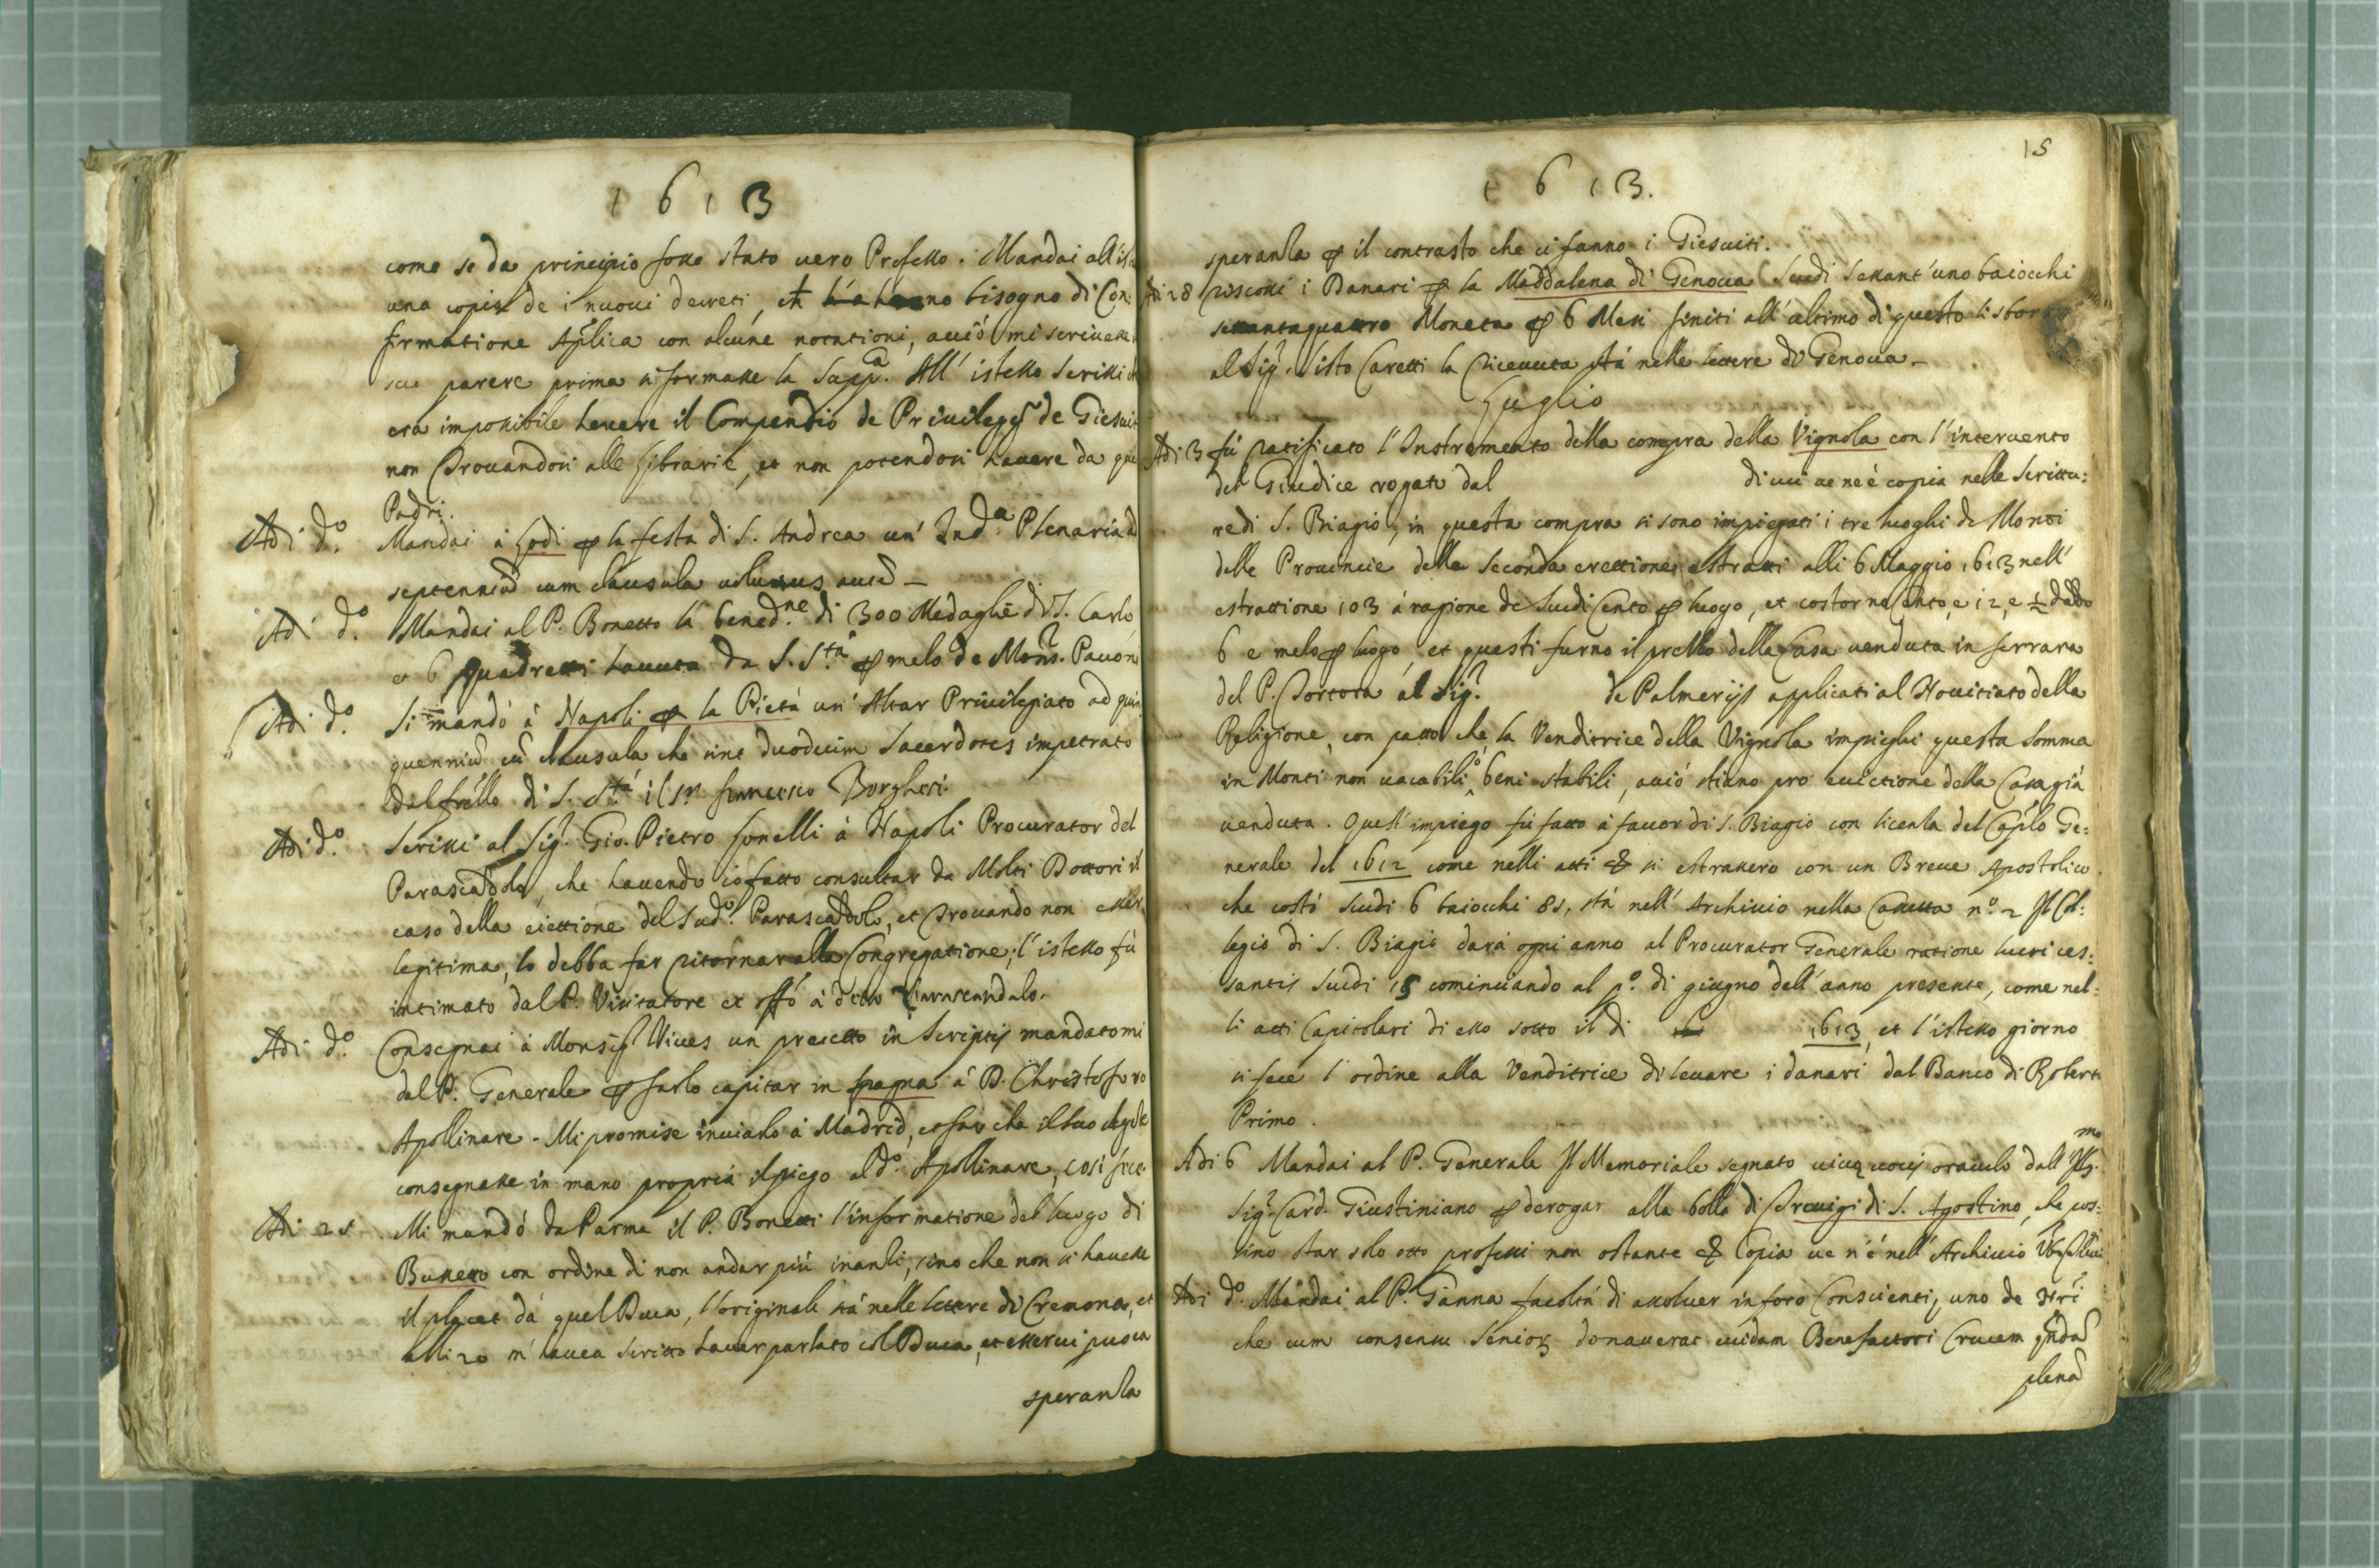 1613
come se da principio fosse stato vero Professo. Mandai all'
una copia de i nuovi decreti, bisogno di Con:
firmatione Aplica con alcune notationi, acciò mi scrivesse
suo parere prima si formasse la Supp.ª All'istesso scrissi
era impossibile havere il Compendio de Privilegij de Giesuit
non trovandosi alle librarie, et non potendosi havere da que
Padri.
Adi d.º Mandai à Lodi ꝑ la festa di S. Andrea un' Ind.ª Plenaria ad
septenniũ cum clausula volumus autẽ _
Adi d.º Mandai al P. Bonetto la bened.ne di 300 Medaglie di S. Carlo
et 6 quadretti havuta da S. S.tà ꝑ melo de Mons.r Pavoni
Adi d.º Si mandò à Napoli ꝑ la Pietà un' Altar Privilegiato ad quin
quenniũ cũ clausula che sint duodecim Sacerdotes impetrato
dal frello di S. S.tà il Francesco Borghesi.
Adi d.º Scrissi al Sig.r Gio. Pietro fonelli à Napoli Procurator del
Parascandolo, che havendo io fatto consultar da Molti Dottori il
caso della eiettione del Sud.º Parascandolo, et trovando non esser
legitima, lo debba far ritornar alla Congregatione; l'istesso fù
intimato dal P. Visitatore et à detto Parascandolo.
Adi d.º Consegnai à Monsig.r Vives un precetto in Scriptis mandatomi
dal P. Generale ꝑ farlo capitar in Spagna à D. Christoforo
Apollinare. Mi promise inviarlo à Madrid, et far che il suo
consegnasse in mano propria il piego al d.º Apollinare, così fece.
Adi 25 Mi mandò da Parma il P. Bonetti l'informatione del luogo di
Busseto con ordine di non andar più inanzi, sino che non si havesse
il placet dà quel Duca, l'originale stà nelle lettere di Cremona, et
alli 20 m'havea scritto haver parlato col Duca, et esservi puoca
speranza
15
1613.
speranza ꝑ il contrasto che ci fanno i Giesuiti.
Adi 28 riscossi i Danari ꝑ la Maddalena di Genova Scudi sessant'uno baiocchi
settantaquattro Moneta ꝑ 6 Mesi finiti all'ultimo di questo li sborsò
al Sig.r Sisto Caretti la ricevuta stà nelle lettere di Genova _
Luglio
Adi 3 fù ratificato l'Instromento della compra della Vignola con l'intervento
del Giudice rogato dal di cui ve ne è copia nelle Scrittu:
re di S. Biagio, in questa compra si sono impiegati i tre luoghi de Monti
delle Provincie della Seconda erettione estratti alli 6 Maggio 1613 nell'
estrattione 103 à ragione de Scudi Cento ꝑ luogo, et costorno Cento, e 12, e ½
6 e melo ꝑ luogo, et questi furno il prezzo della Casa venduta in ferrara
del P. Tortora al Sig.r de Palmerijs applicati al Novitiato della
Religione, con patto che la Venditrice della Vignola impieghi questa somma
in Monti non vacabili, ò beni stabili, acciò stiano pro evictione della Casa già
venduta. Quest'impiego fù fatto à favor di S. Biagio con licenza del Caplo Ge:
nerale del 1612 come nelli atti & si estrassero con un Breve Apostolico
che costò scudi 6 baiocchi 85, stà nell'Archivio nella Cassetta n.º 2 Il Col:
legio di S. Biagio darà ogni anno al Procurator Generale ratione lucri ces:
santis scudi 15 cominciando al p.º di giugno dell'anno presente, come nel:
li atti Capitolari di esso sotto il di 1613, et l'istesso giorno
si fece l'ordine alla Venditrice di levare i danari dal Banco di Roberto
Primo.
Adi 6 Mandai al P. Generale Il Memoriale segnato vivæ vocis oraculo dall'Ill.mo
Sig.r Card. Giustiniano ꝑ derogar alla bolla di Trevigi di S. Agostino, che pos:
sino star solo otto professi non ostante & Copia ve n'è nell'Archivio
Adi d.º Mandai al P. Ganna facoltà di assolver in foro Conscienti, uno de nri
che cum consensu Senior donaverat cuidam Benefactori Crucem
plenã